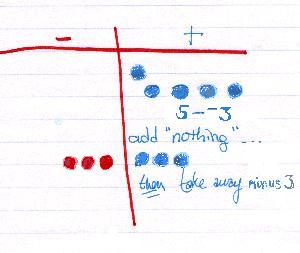 - +
5 - -3
add "nothing"...
then take away minus 3.